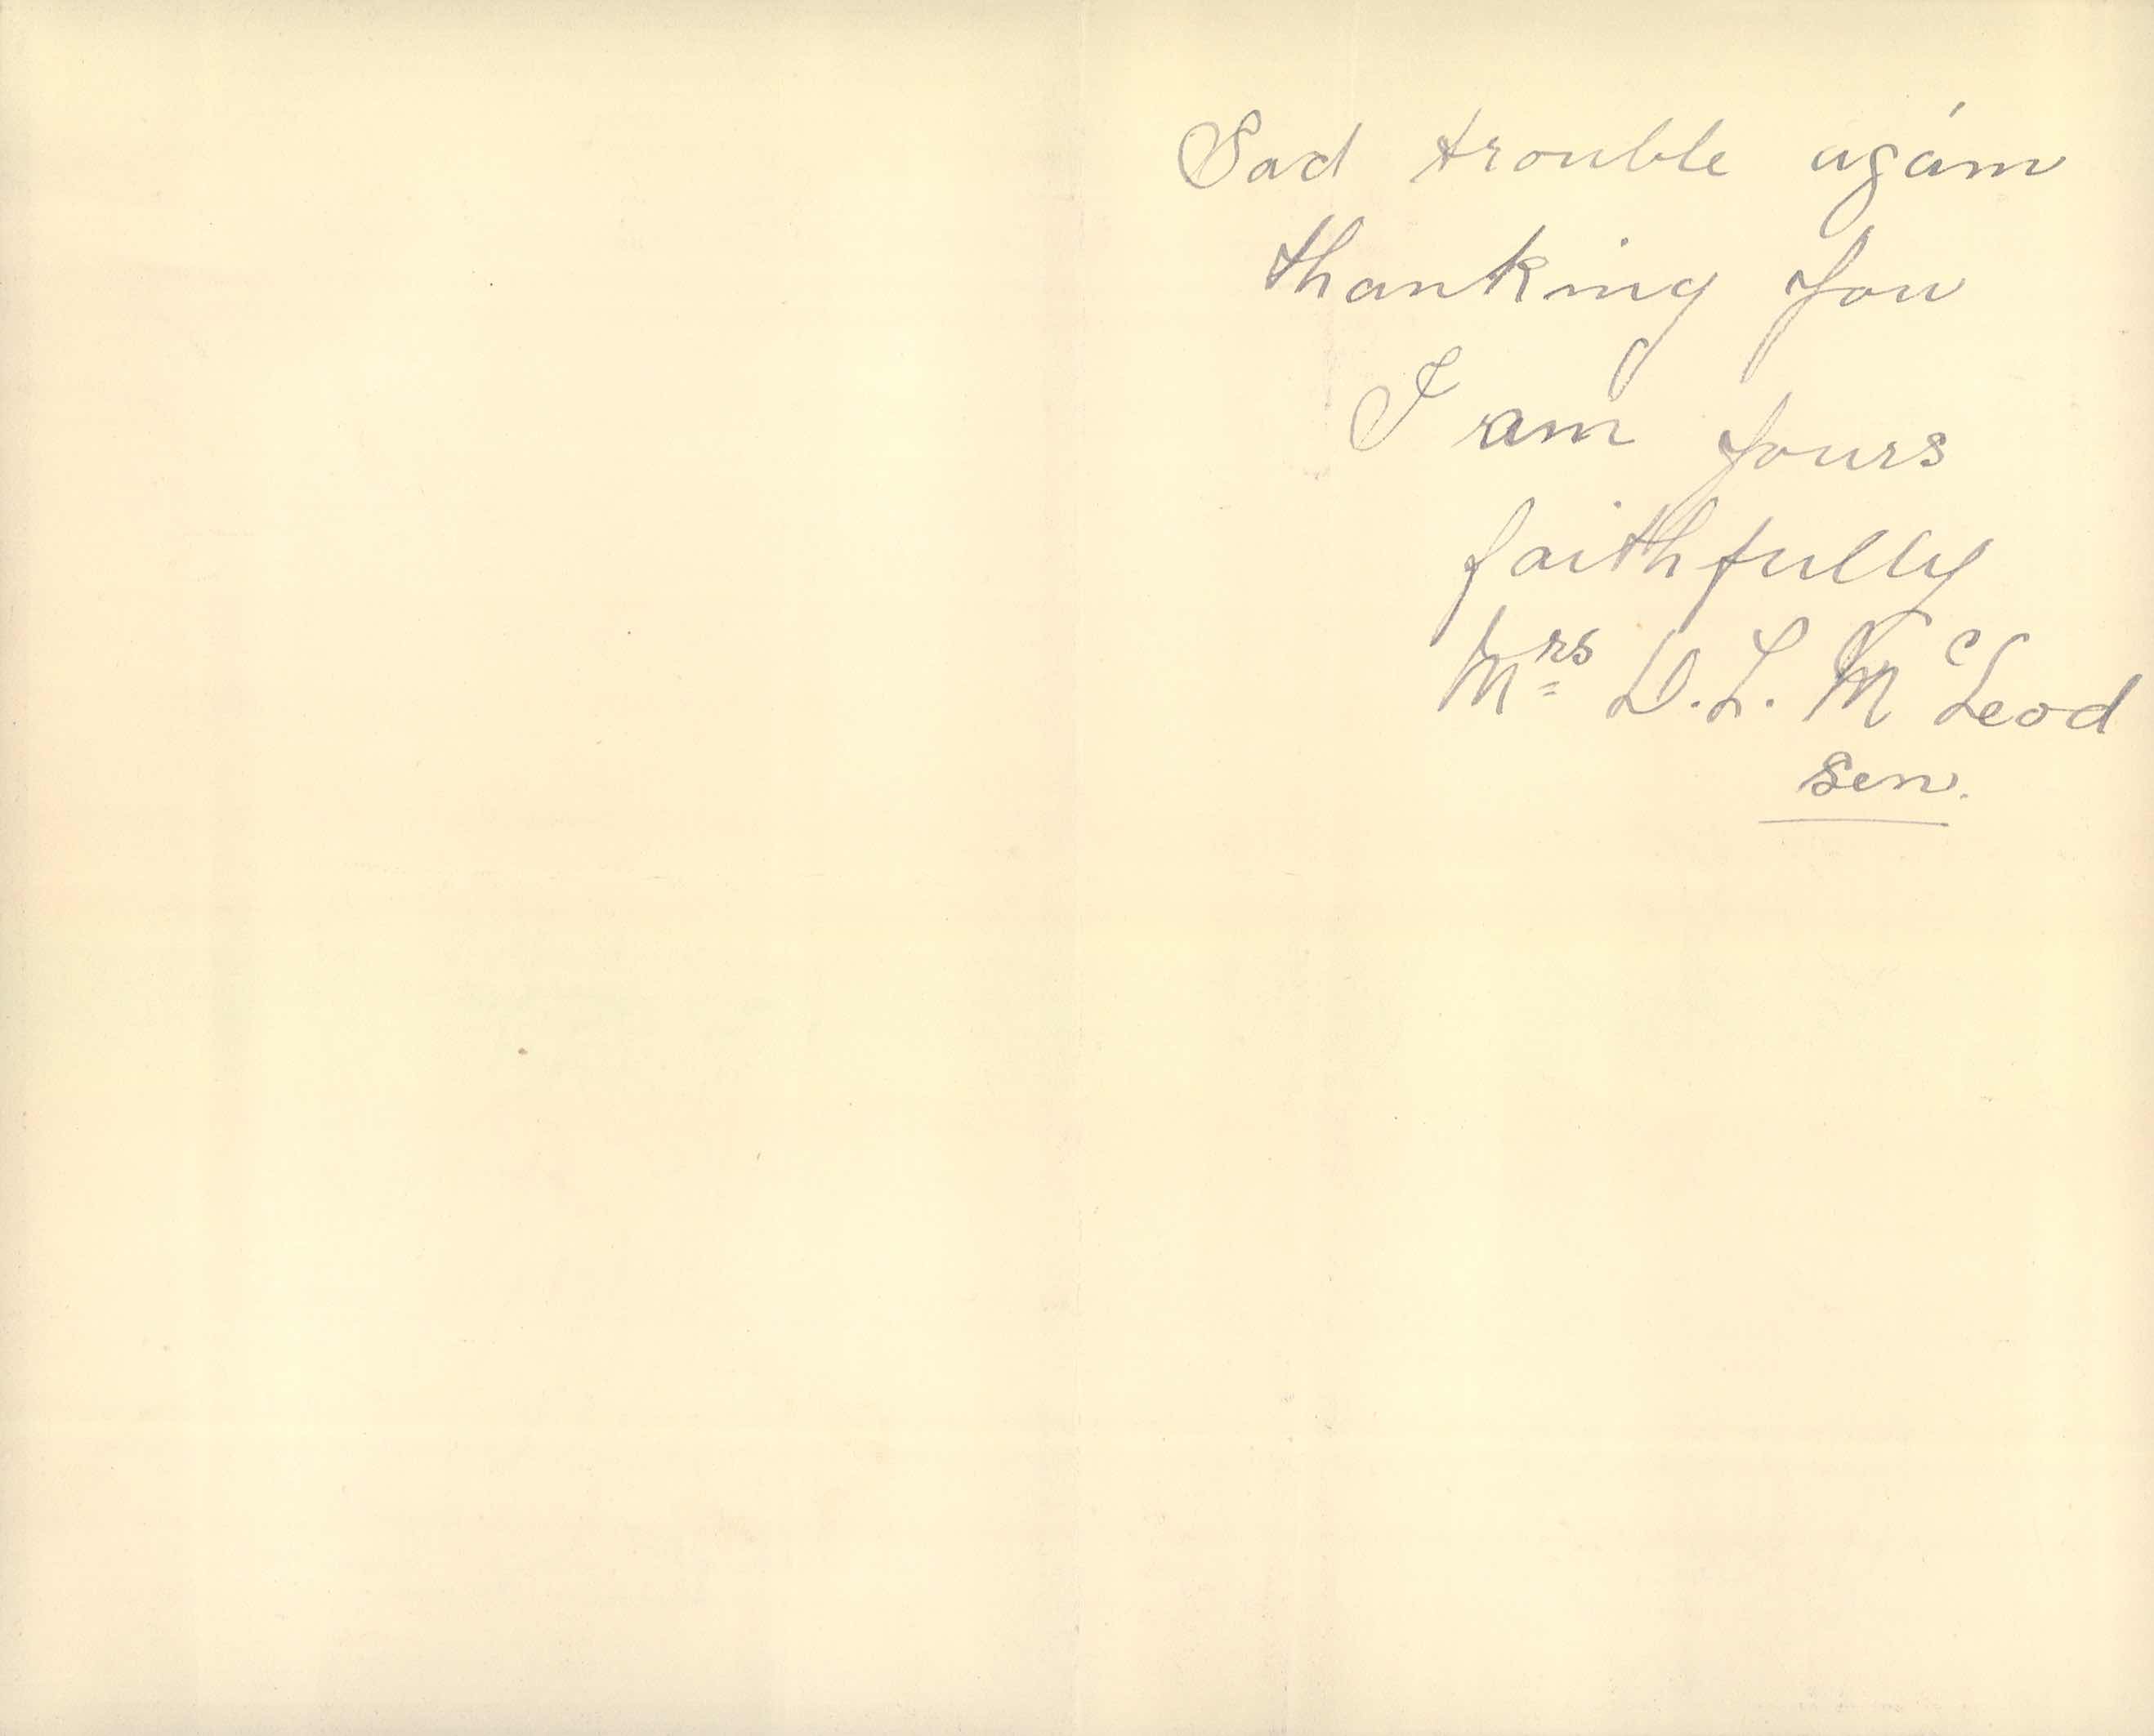 Sad trouble again
thanking you
I am yours
faithfully
Mrs D. L. McLeod
sen.